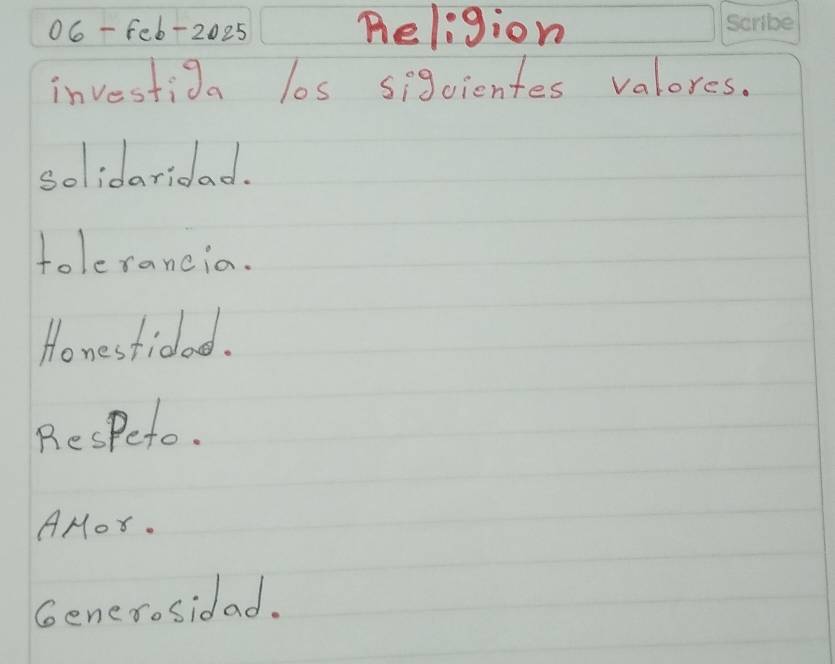 06-Feb-2025 Religion Scribe
investiga los siguientes valores.
solidaridad.
tolerancia.
Honestidad.
Respeto.
AMor.
Generosidad.